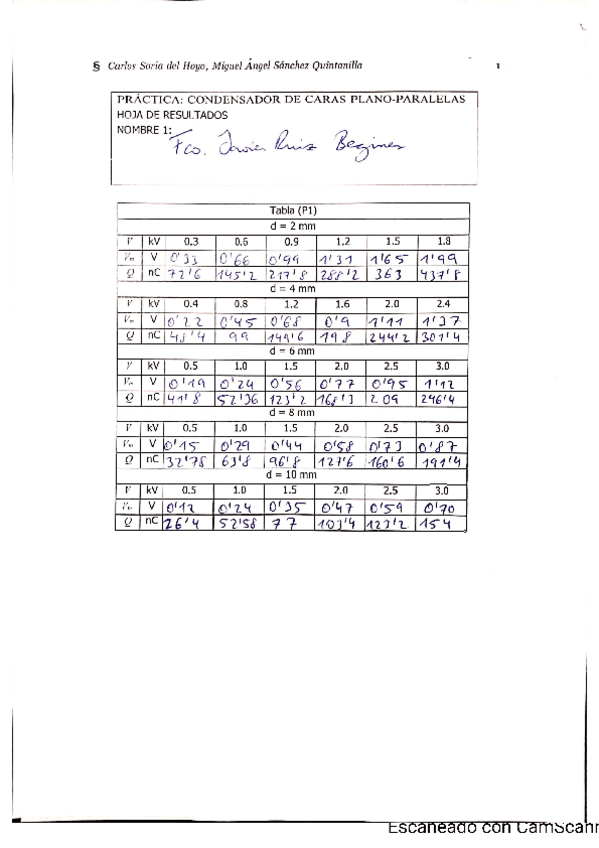 § Carlos Soria del Hoyo, Miguel Ángel Sánchez Quintanilla 1
PRÁCTICA: CONDENSADOR DE CARAS PLANO-PARALELAS
HOJA DE RESULTADOS
NOMBRE 1: Fco. Javier Ruiz Begines
Tabla (P1)
d = 2 mm
V kV 0.3 0.6 0.9 1.2 1.5 1.8
Vm V 0'33 0'66 0'99 1'31 1'65 1'99
Q nC 72'6 145'2 217'8 288'2 363 437'8
d = 4 mm
V kV 0.4 0.8 1.2 1.6 2.0 2.4
Vm V 0'22 0'45 0'68 0'9 1'11 1'37
Q nC 48'4 99 149'6 198 244'2 301'4
d = 6 mm
V kV 0.5 1.0 1.5 2.0 2.5 3.0
Vm V 0'19 0'24 0'56 0'77 0'95 1'12
Q nC 41'8 52'36 123'2 168'3 209 246'4
d = 8 mm
V kV 0.5 1.0 1.5 2.0 2.5 3.0
Vm V 0'15 0'29 0'44 0'58 0'73 0'87
Q nC 32'78 63'8 96'8 127'6 160'6 191'4
d = 10 mm
V kV 0.5 1.0 1.5 2.0 2.5 3.0
Vm V 0'12 0'24 0'35 0'47 0'59 0'70
Q nC 26'4 52'58 77 103'4 123'2 154
Escaneado con CamScann